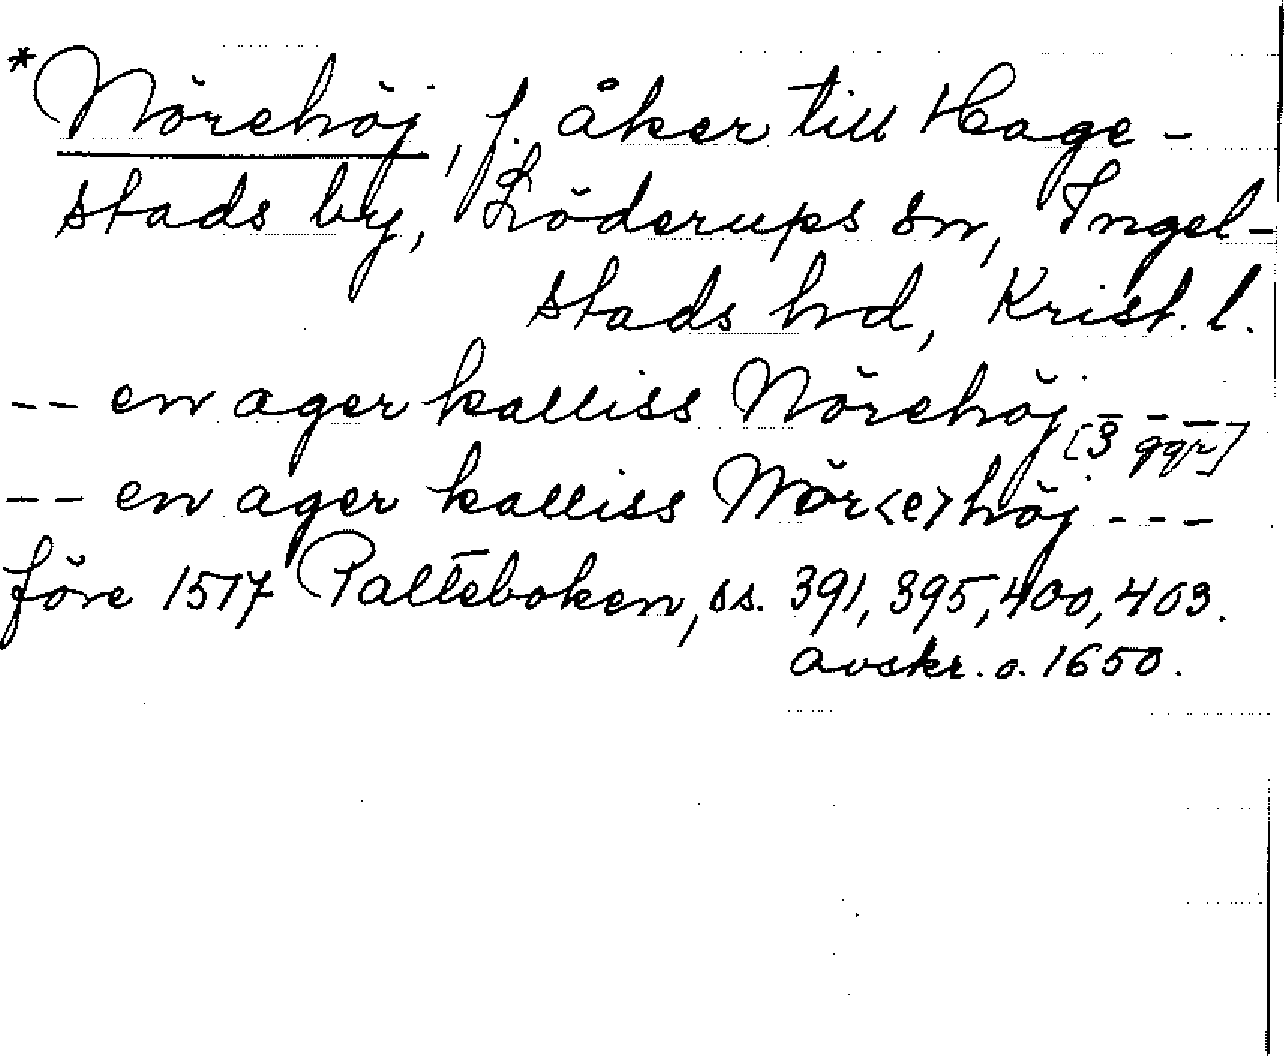 *Nörehöj, f. åker till Hage-
stads by, Löderups sn, Ingel-
stads hd, Krist. l.
-- en ager kalliss Nörehöj --- [3 ggr]
-- en ager kalliss Nör<e>höj ---
före 1517 Palteboken, ss. 391, 395, 400, 403.
avskr. o. 1650.